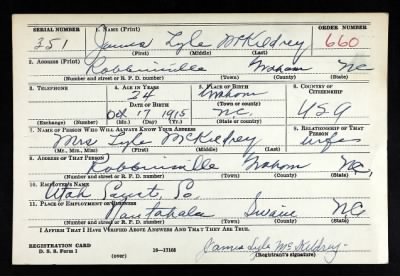 SERIAL NUMBER 1. NAME (Print) ORDER NUMBER
351 James Lyle McKildrey 660
(First) (Middle) (Last)
2. ADDRESS (Print)
Robbinsville Graham NC
(Number and street or R. F. D. number) (Town) (County) (State)
3. TELEPHONE 4. AGE IN YEARS 5. PLACE OF BIRTH 6. COUNTRY OF CITIZENSHIP
24 Graham
DATE OF BIRTH (Town or county)
Oct 17 1915 NC, USA
(Exchange) (Number) (Mo.) (Day) (Yr.) (State or country)
7. NAME OF PERSON WHO WILL ALWAYS KNOW YOUR ADDRESS 8. RELATIONSHIP OF THAT PERSON
Mrs Lyle McKildrey wife
(Mr., Mrs., Miss) (First) (Middle) (Last)
9. ADDRESS OF THAT PERSON
Robbinsville Graham NC,
(Number and street or R. F. D. number) (Town) (County) (State)
10. EMPLOYER'S NAME
Utah Co.
11. PLACE OF EMPLOYMENT OR BUSINESS
Nantahala Swain NC
(Number and street or R. F. D. number) (Town) (County) (State)
I AFFIRM THAT I HAVE VERIFIED ABOVE ANSWERS AND THAT THEY ARE TRUE.
REGISTRATION CARD
D. S. S. Form 1 16—17105 James Lyle McKildrey
(over) (Registrant's signature)